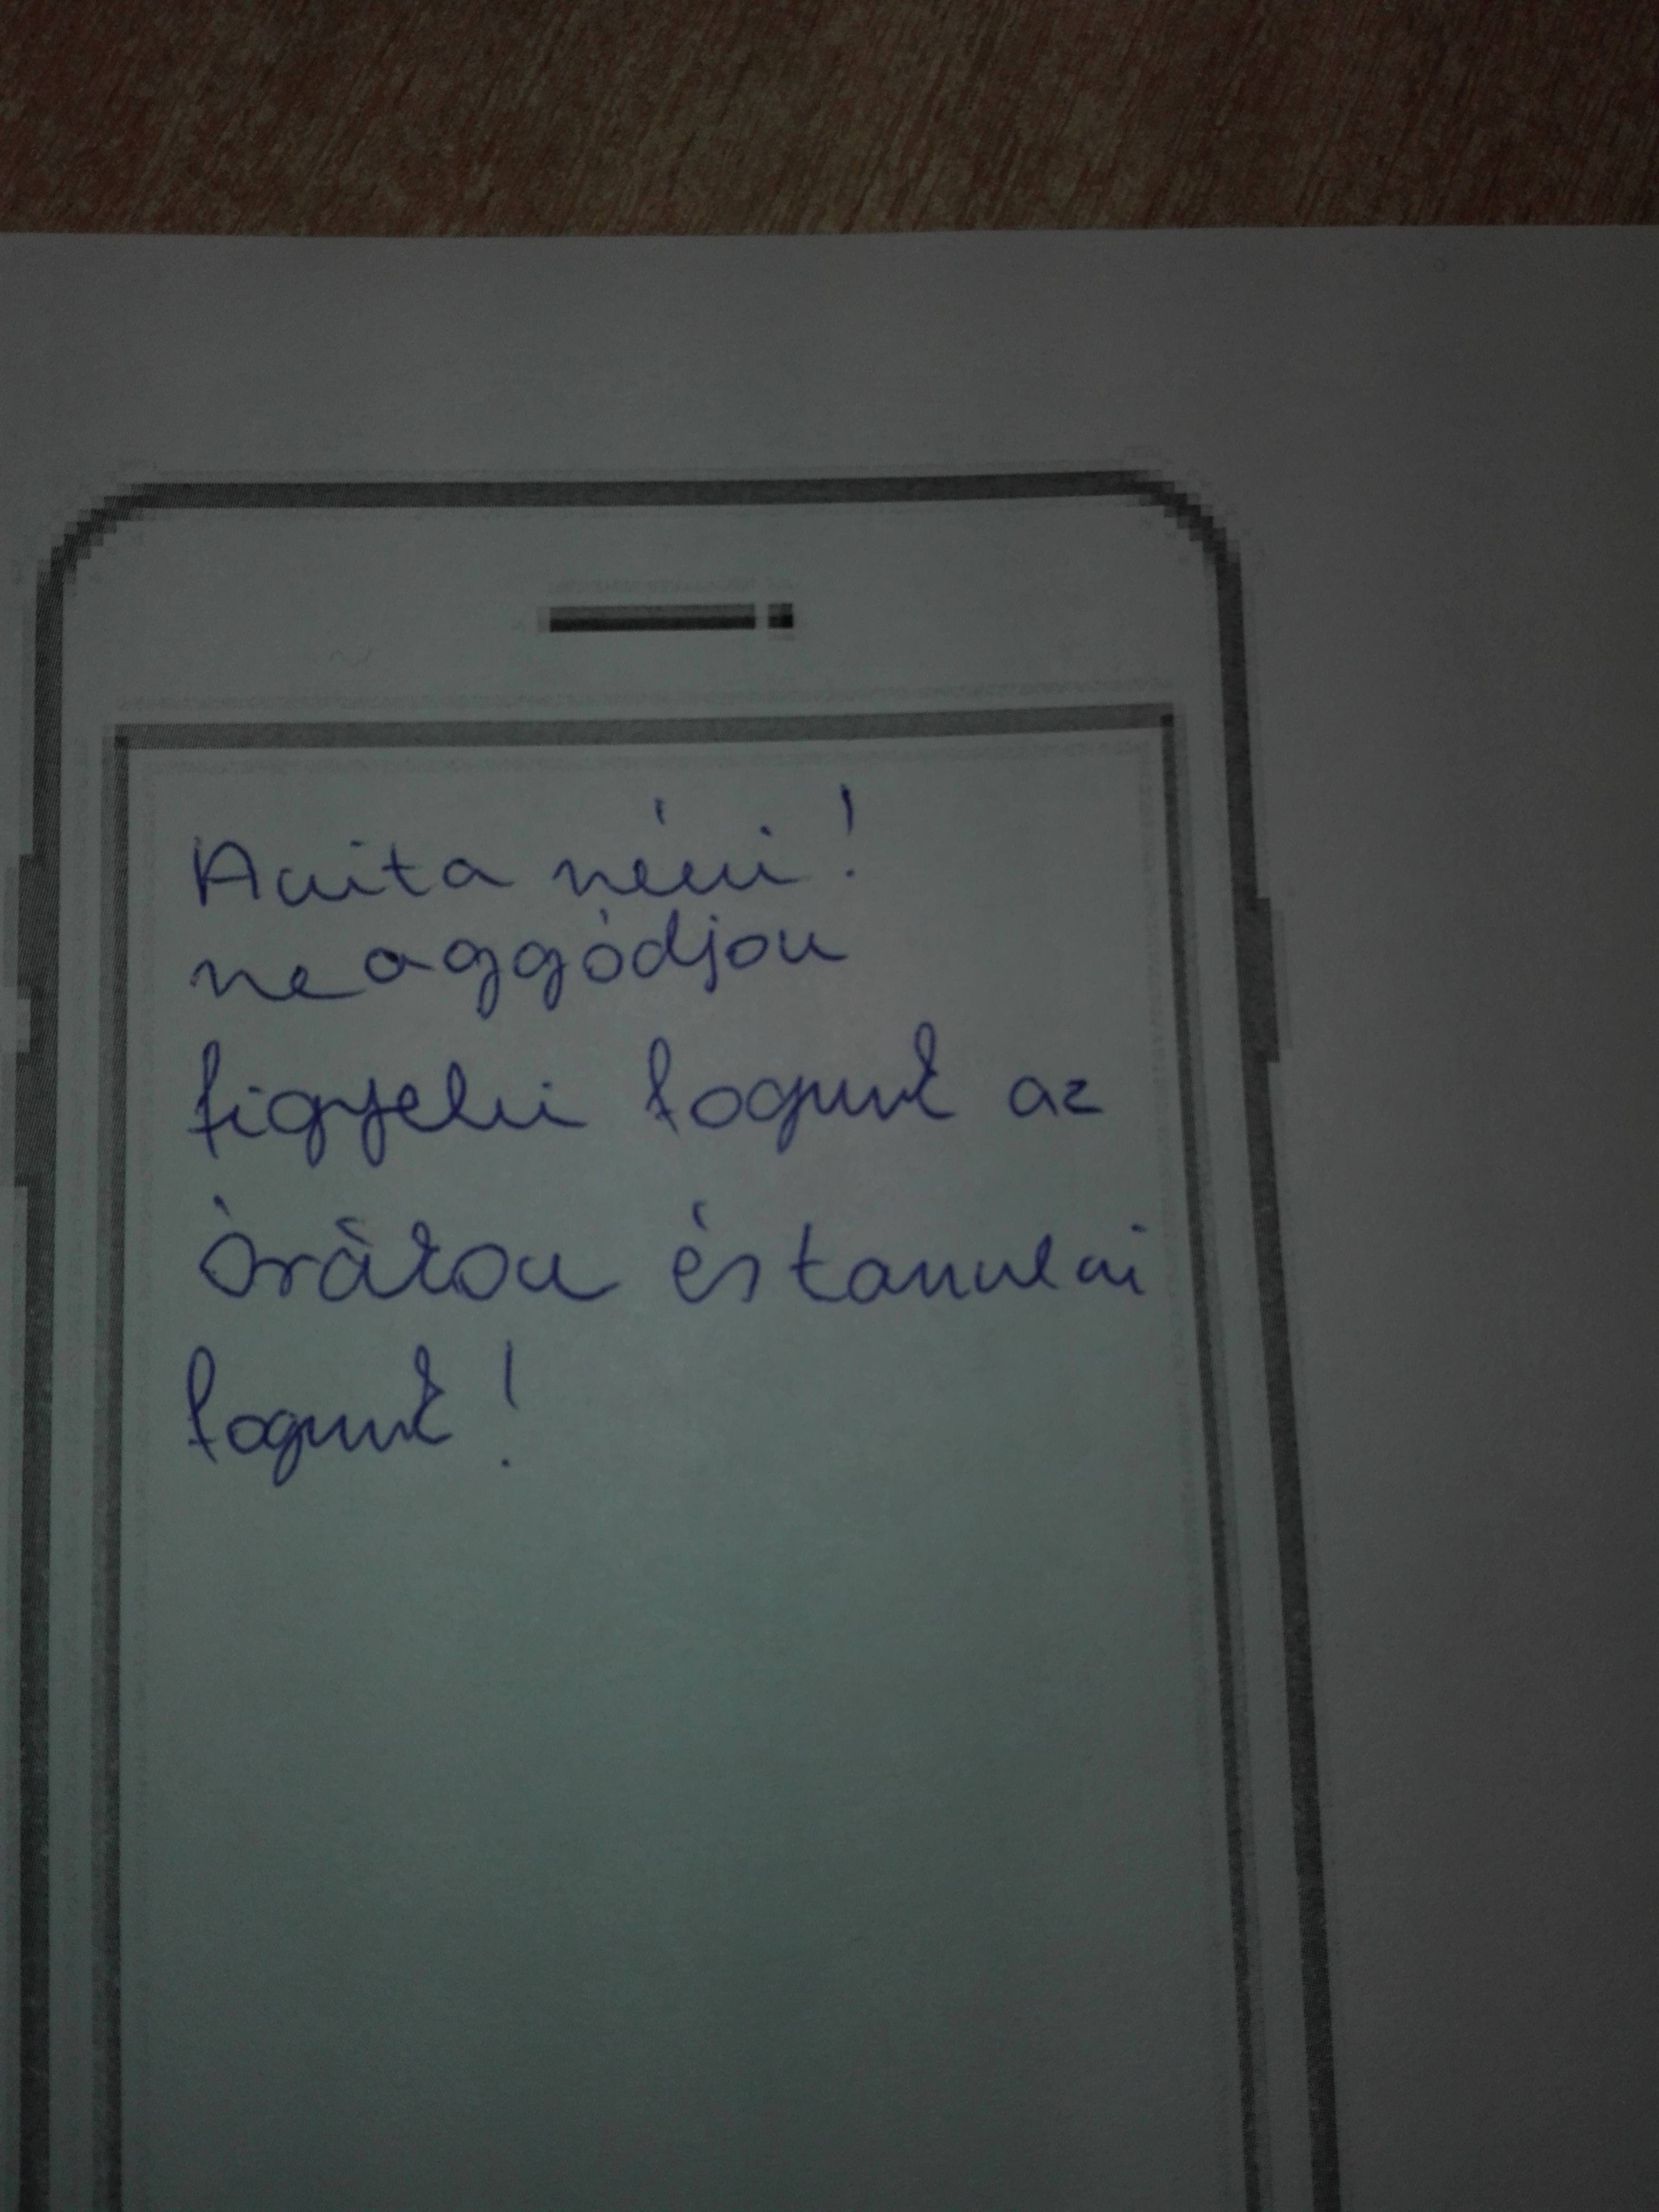 Anita néni!
ne aggódjon
figyelni fogunk az
órákon és tanulni
fogunk!